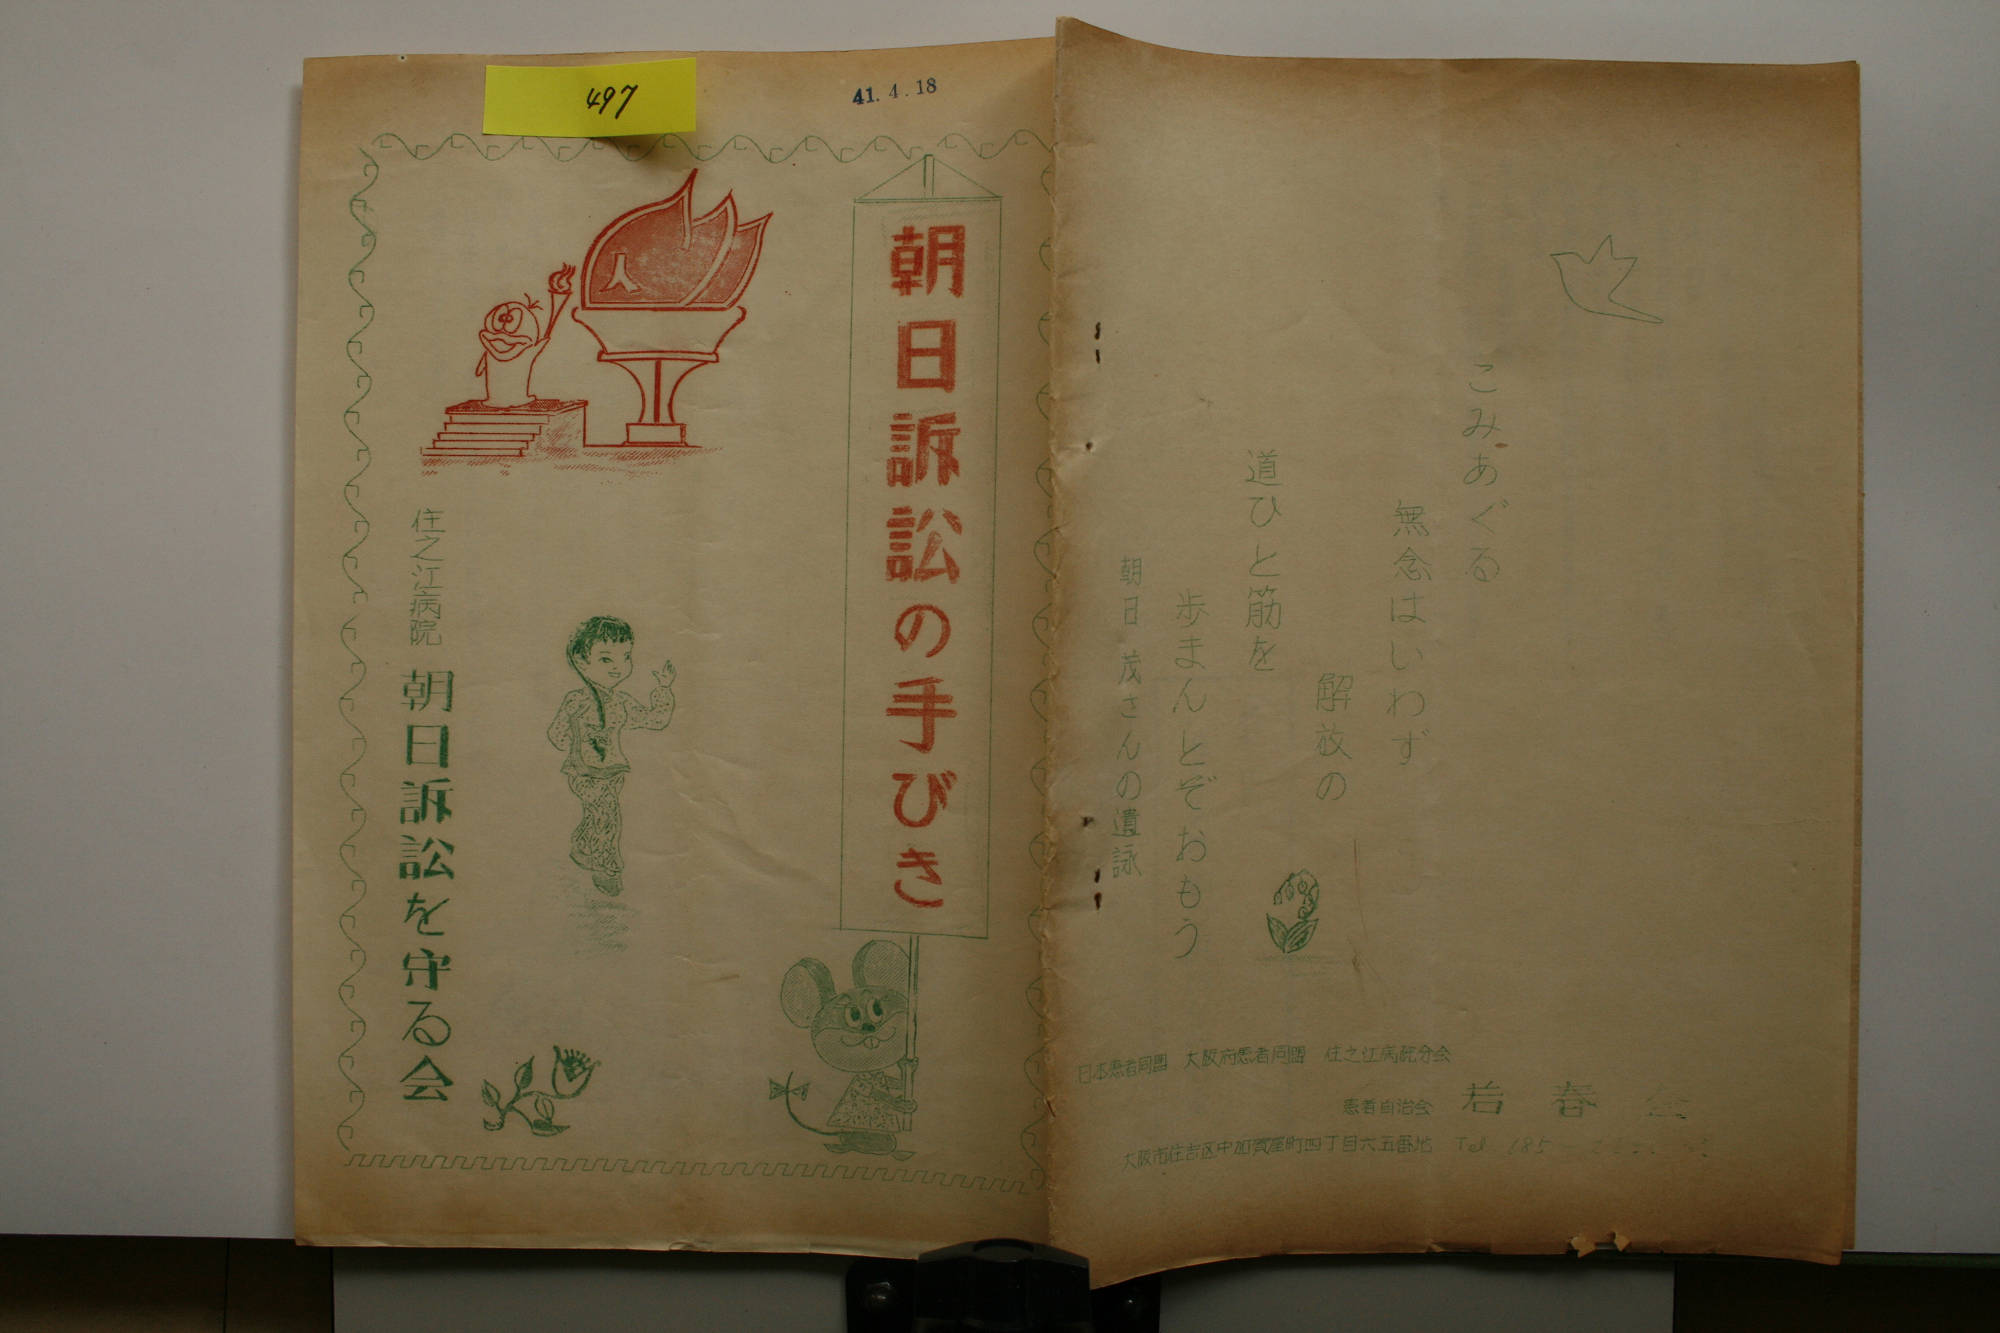 497
41.4.18
朝日訴訟の手びき
住之江病院
朝日訴訟を守る会
こみあぐる
無念はいわず
解放の
道ひと筋を
歩まんとぞおもう
朝日 茂さんの遺詠
日本患者同盟 大阪府患者同盟 住之江病院分会
患者自治会 若春会
大阪市住吉区中加賀屋町四丁目六五番地 Tel